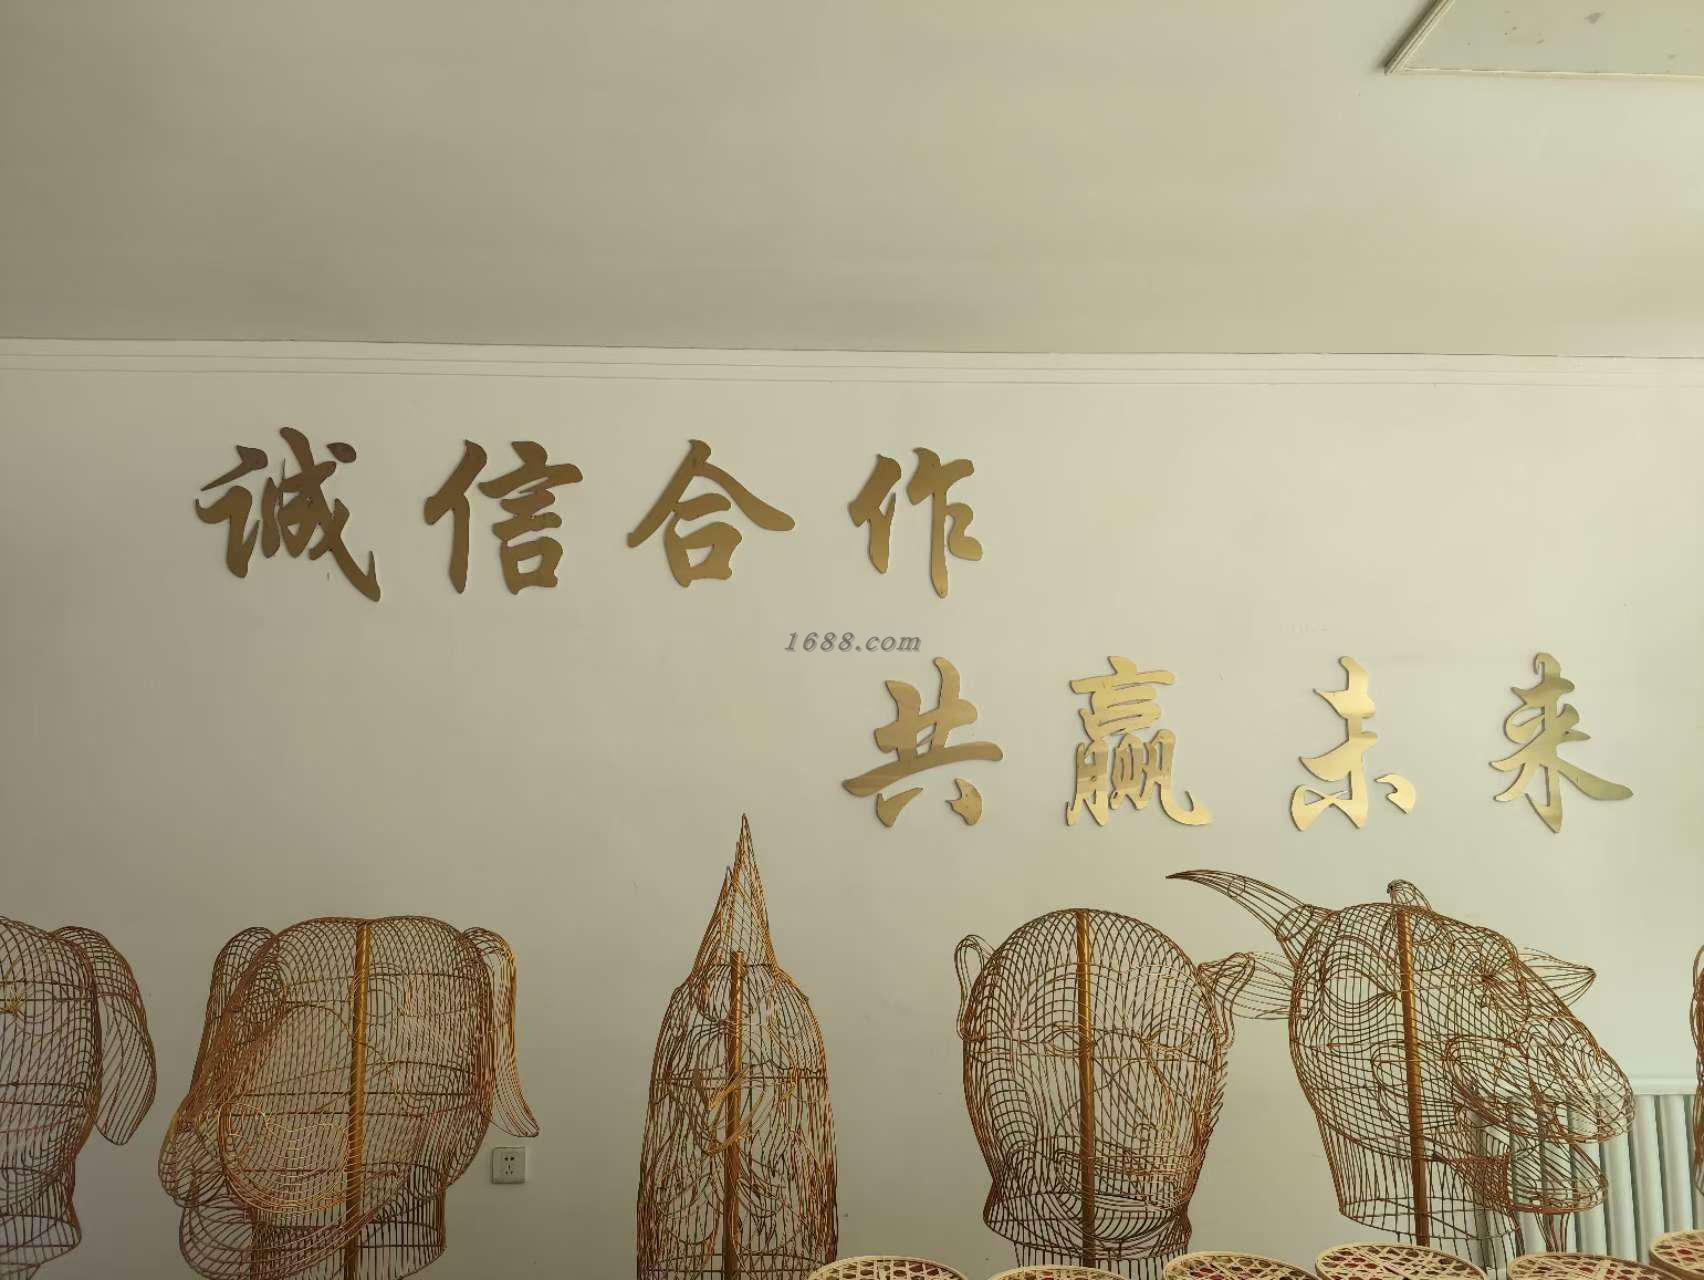 诚信合作
1688.com
共赢未来